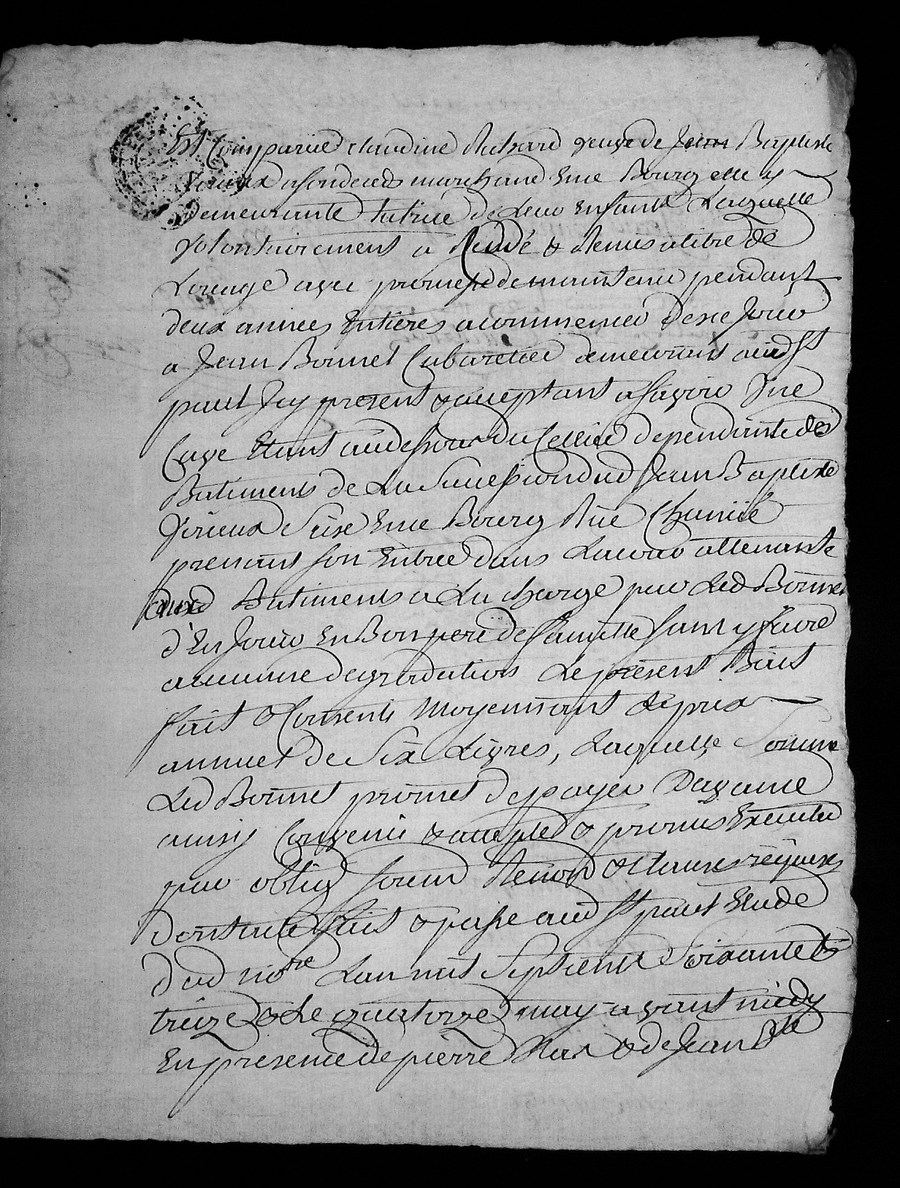 Est Comparüe claudine Richard veuve de Jean Baptiste
vivant marchand En ce Bourg elle y
Demeurante tutrice de Leur Enfants Laquelle
volontairement a Cedé & Remis a titre de
Louage avec promesse de maintenir pendant
deux années Entieres a commencer de ce Jour
a Jean Bonnet Cabaretier demeurant aud St
paul Icy present & acceptant a Sçavoir Une
Cave Etant au dessous du Cellier dependante des
Batiments de La Succession dud Jean Baptiste
Sise En ce Bourg Rüe
prenant son Entrée dans La Cour attenante
auxd Batiments a La charge par Led Bonnet
d'En Jouir En Bon pere de famille sans y faire
aucune degradation Le present Bail
fait & Consenti Moyennant Le prix
annuel de Six Livres, Laquelle Somme
Led Bonnet promet de payer D'avance
ainsy Convenu & accepté & promis Executer
par oblig soum Renon & Clauses requises
dont acte fait & passé aud St paul Etude
dud nore Lan mil Sept cent Soixante et
treize & Le quatorze may avant midy
En presence de pierre & de Jean Bte